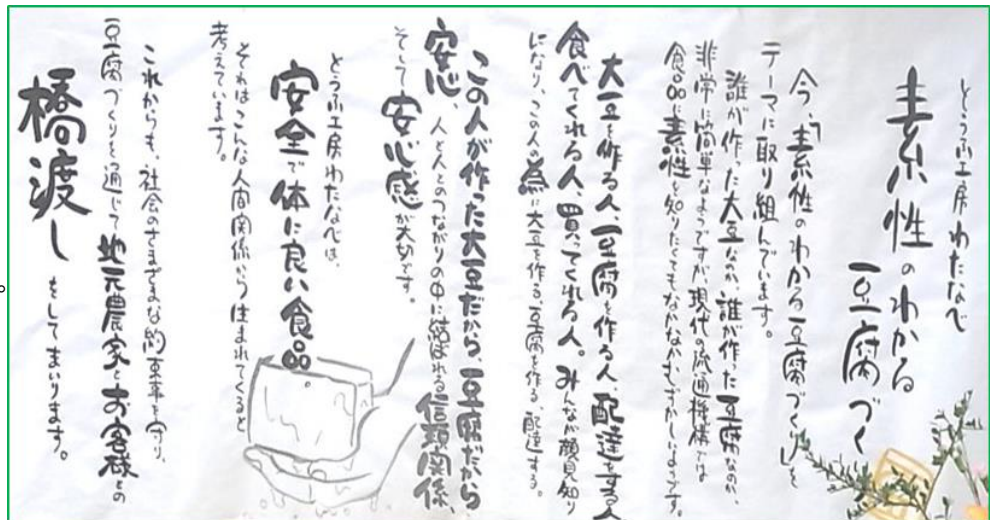 とうふ工房わたなべ
素性のわかる
豆腐づくり
今、「素性のわかる豆腐づくり」を
テーマに取り組んでいます。
誰が作った大豆なのか、誰が作った豆腐なのか、
非常に簡単なようですが、現代の流通機構では
食品に素性を知りたくてもなかなかむずかしいようです。
大豆を作る人、豆腐を作る人、配達をする人
食べてくれる人、買ってくれる人。みんなが顔見知り
になり、この人の為に大豆を作る、豆腐を作る、配達する。
この人が作った大豆だから、豆腐だから
安心、人と人とのつながりの中に結ばれる信頼関係、
そして安心感が大切です。
とうふ工房わたなべは、
安全で体に良い食品。
それはこんな人間関係から生まれてくると
考えています。
これからも、社会のさまざまな約束事を守り、
豆腐づくりを通じて地元農家とお客様との
橋渡しをしてまいります。